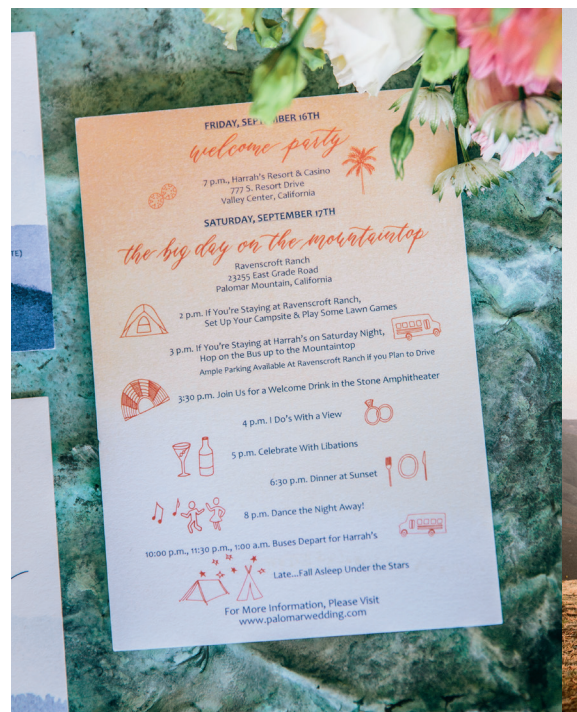 FRIDAY, SEPTEMBER 16TH
welcome party
7 p.m., Harrah's Resort & Casino
777 S. Resort Drive
Valley Center, California
SATURDAY, SEPTEMBER 17TH
the big day on the mountaintop
Ravenscroft Ranch
23255 East Grade Road
Palomar Mountain, California
2 p.m. If You're Staying at Ravenscroft Ranch,
Set Up Your Campsite & Play Some Lawn Games
3 p.m. If You're Staying at Harrah's on Saturday Night,
Hop on the Bus up to the Mountaintop
Ample Parking Available At Ravenscroft Ranch if you Plan to Drive
3:30 p.m. Join Us for a Welcome Drink in the Stone Amphitheater
4 p.m. I Do's With a View
5 p.m. Celebrate With Libations
6:30 p.m. Dinner at Sunset
8 p.m. Dance the Night Away!
10:00 p.m., 11:30 p.m., 1:00 a.m. Buses Depart for Harrah's
Late...Fall Asleep Under the Stars
For More Information, Please Visit
www.palomarwedding.com